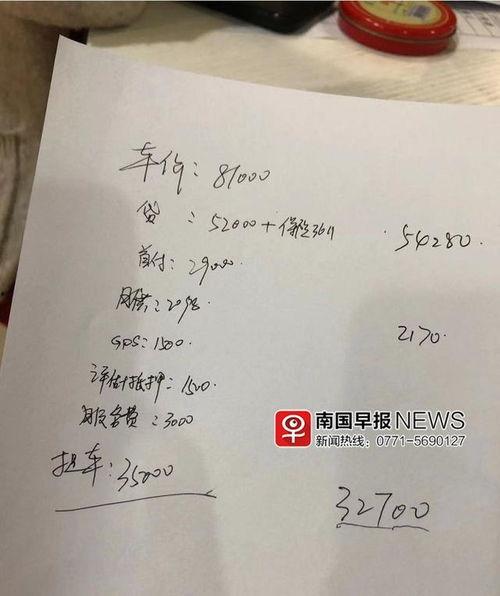 车价：81000
贷：52000+保险3611 54280.
首付：29000.
月供：2098.
GPS：1500. 2170.
评估抵押：1500
服务费：3000
南国早报 NEWS
新闻热线：0771-5690127
提车：35000
32700